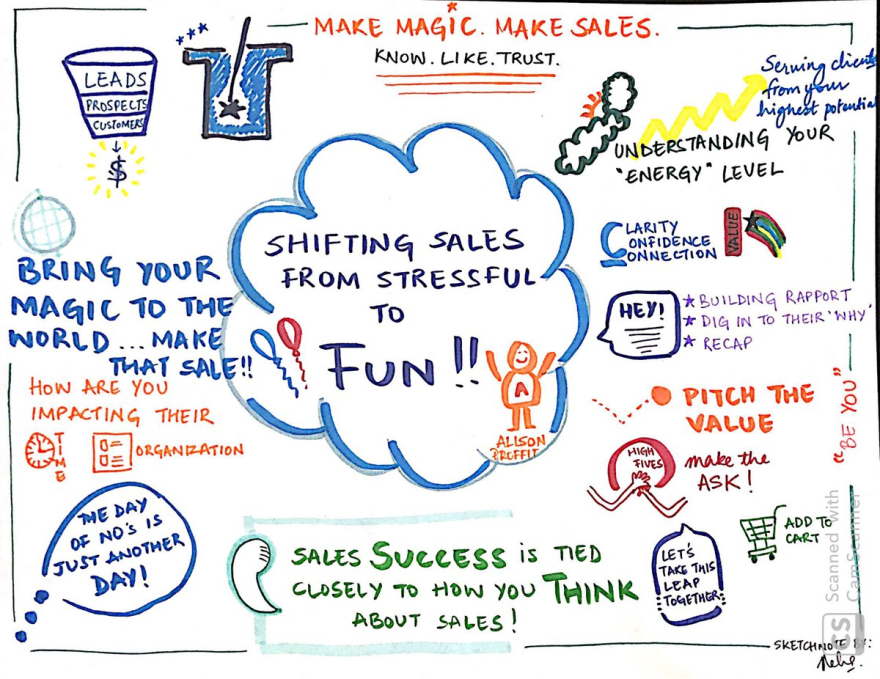 MAKE MAGIC. MAKE SALES.
KNOW. LIKE. TRUST.
LEADS
PROSPECTS
CUSTOMERS
$
Serving clients
from your
highest potential
UNDERSTANDING YOUR
"ENERGY" LEVEL
SHIFTING SALES
FROM STRESSFUL
TO
FUN!!
A
ALISON
PROFFIT
CLARITY
CONFIDENCE
CONNECTION
VALUE
BRING YOUR
MAGIC TO THE
WORLD ... MAKE
THAT SALE!!
HEY!
BUILDING RAPPORT
DIG IN TO THEIR 'WHY'
RECAP
HOW ARE YOU
IMPACTING THEIR
TIME
ORGANIZATION
PITCH THE
VALUE
"BE YOU"
HIGH
FIVES
make the
ASK!
THE DAY
OF NO'S IS
JUST ANOTHER
DAY!
SALES SUCCESS is TIED
CLOSELY TO HOW YOU THINK
ABOUT SALES!
LET'S
TAKE THIS
LEAP
TOGETHER
ADD TO
CART
SKETCHNOTE BY:
CS
Scanned with
CamScanner